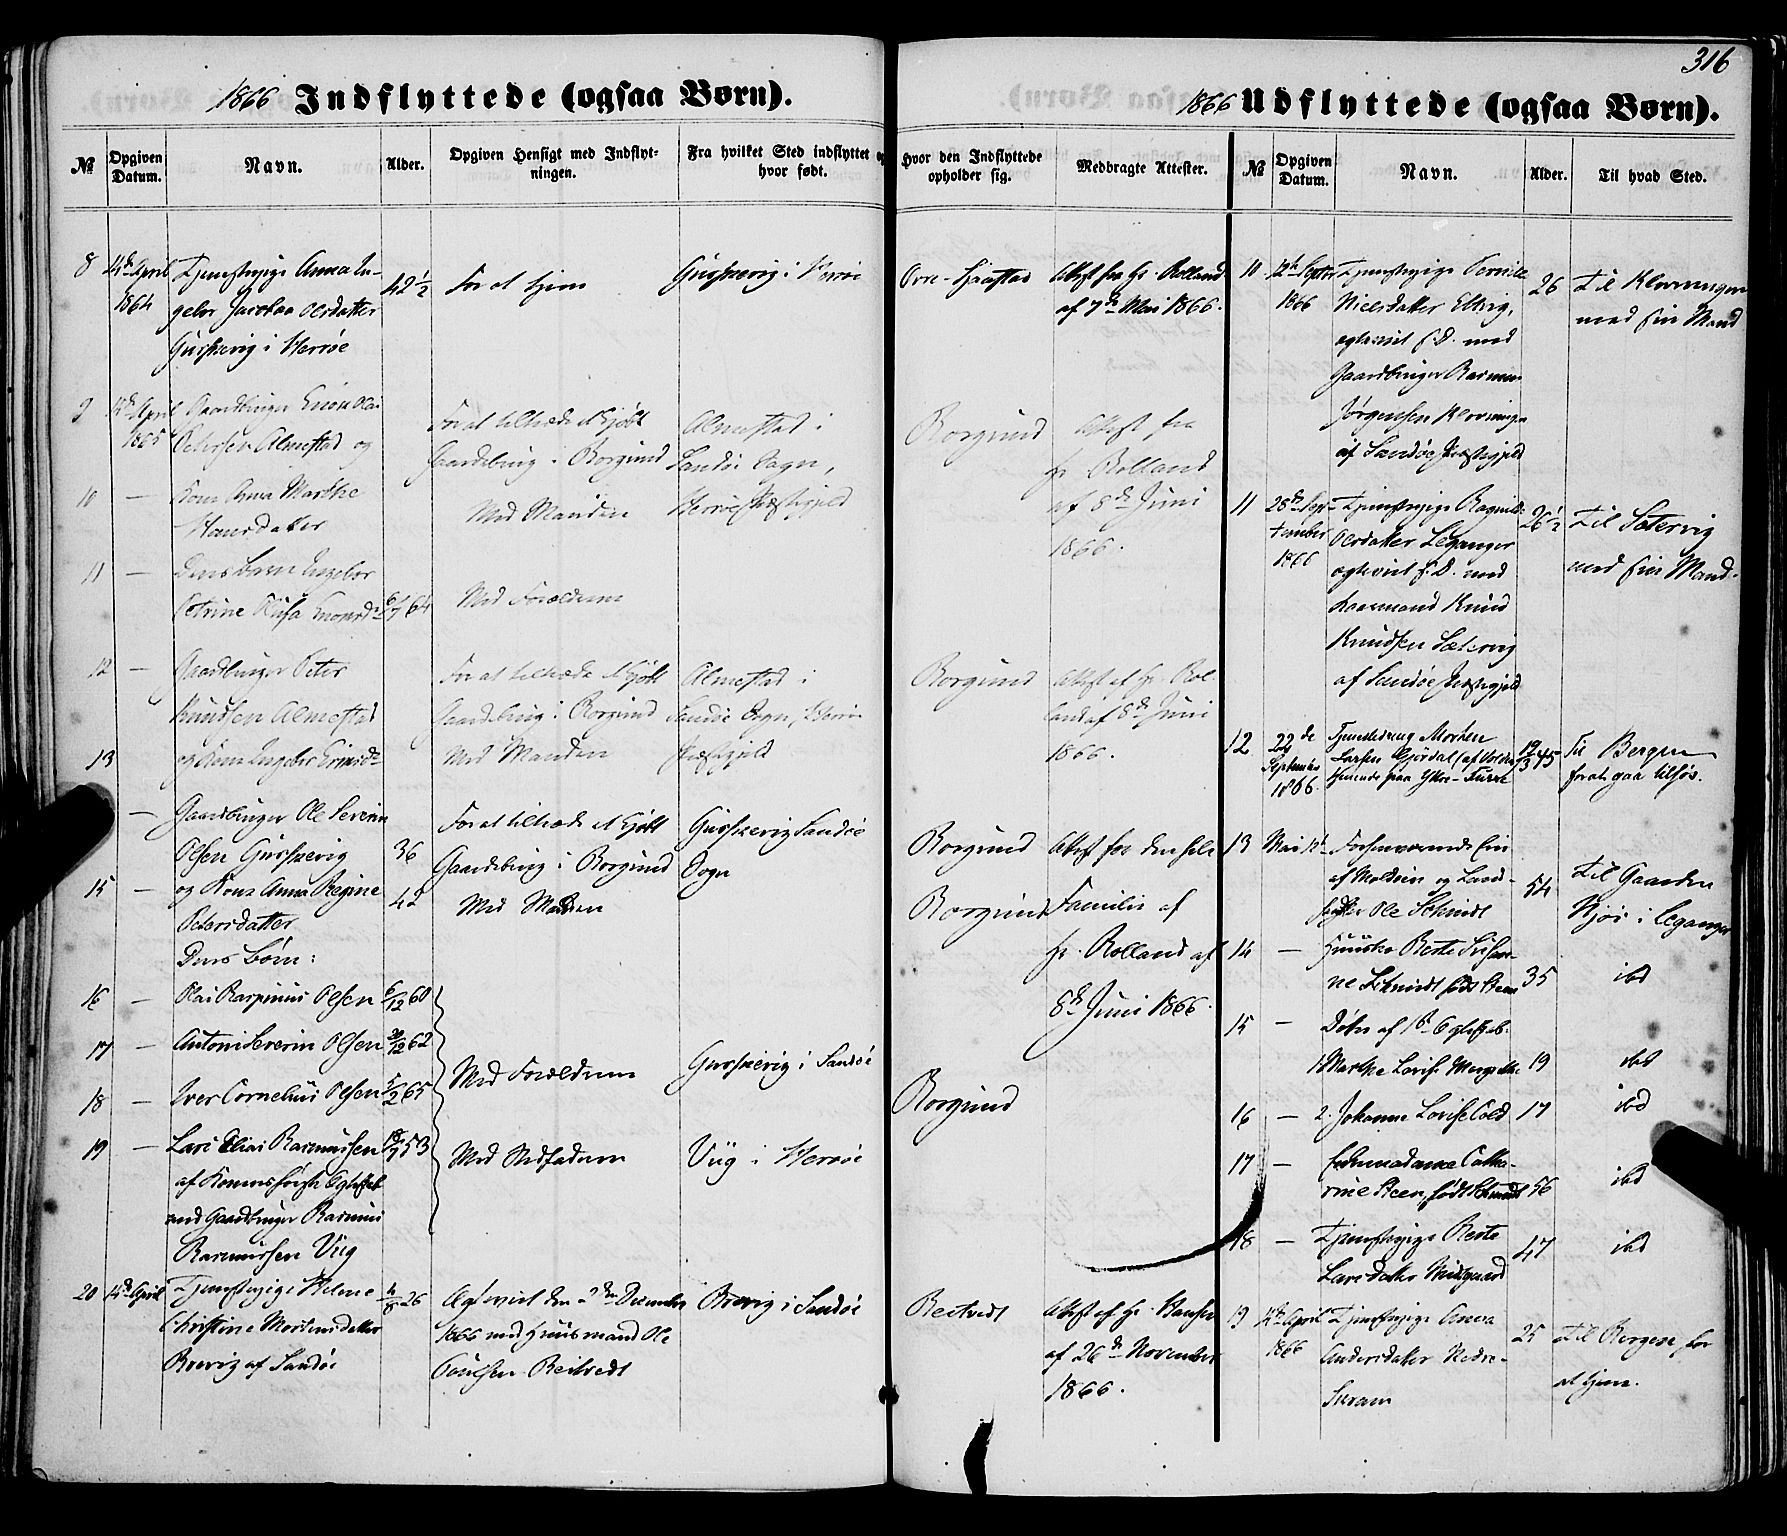 316
1866 Indflyttede (ogsaa Børn).
№
Opgiven Datum.
Navn.
Alder.
Opgiven Hensigt med Indflyt-
ningen.
Fra hvilket Sted indflyttet og
hvor født.
Hvor den Indflyttede
opholder sig.
Medbragte Attester.
8
14de April
1864
Tjenestepige Anna In-
gebor Jacobaa Olsdatter
Gurskevig i Herröe
42½
For at tjene
Gurskevig i Herröe
Øvre-
Attest fra Hr. Rolland
af 7de Mai 1866.
9
14de April
1865
Gaardbruger
Petersen Almestad og
For at tiltræde et kjøbt
Gaardsbrug i Borgund
Almestad i
Sandöe Sogn,
Herröe Præstegjeld
Borgund
Attest fra
Hr. Rolland
af 8de Juni
1866.
10
—
Kone Anna Marthe
Hansdatter
Med Manden
11
—
Deres Barn Ingebor
Petrine
64
Med Forældrene
12
—
Gaardbruger Peter
Knudsen Almestad
For at tiltræde et kjøbt
Gaardsbrug i Borgund
Almestad i
Sandöe Sogn, Herröe
Præstegjeld
Borgund
Attest af Hr. Rol-
land af 8de Juni
1866.
13
og Kone Ingebor
Med Manden
—
Gaardbruger Ole Severin
Olsen Gurskevig
36
For at tiltræde et kjøbt
Gaardsbrug i Borgund
Gurskevig Sandöe
Sogn
Borgund
Attest for den hele
Familie af
Hr. Rolland af
8de Juni 1866.
15
—
og Kone Anna Regine
Petersdatter
42
Med Manden
Borgund
Deres Børn:
16
—
Olai Rasmus Olsen
6/12 60
17
—
Antoni Severin Olsen
30/12 62
Med Forældrene
Gurskevig i Sandöe
Borgund
18
—
Iver Cornelius Olsen
5/2 65
19
—
Lars Elias Rasmussen
53
af Konens første Egteskab
med Gaardbruger Rasmus
Rasmussen Viig
Med Stedfaderen
Viig i Herröe
20
14de April
Tjenestepige Helene
Christine Mortensdatter
Brevig af Sandöe
4/8 26
Egteviet den 2den December
1866 med Huusmand Ole
Poulsen Reitvedt
Brevig i Sandöe
Reitvedt
Attest af Hr. Hansen
af 26de November
1866.
1866 Udflyttede (ogsaa Børn).
№
Opgiven Datum.
Navn.
Alder.
Til hvad Sted.
10
12te Septbr
1866
Tjenestepige Pernille
Nielsdatter Eltvig,
egteviet s. D. med
Gaardbruger Rasmus
Jørgensen Klovningen
af Sandöe Præstegjeld
26
Til Klovningen
med sin Mand
11
28de Sep-
tember
1866
Tjenestepige Ragnild
Olsdatter Leganger
egteviet s. D. med
Laasmand Knud
Knudsen Sætervig
af Sandöe Præstegjeld
26½
Til Sætervig
med sin Mand.
12
22de
September
1866.
Tjenestedreng Morten
Larsen
tjenende paa Ytre-
19/3 45
Til Bergen
for at gaa tilsøs.
13
Mai
Forhenværende
af Molden og Land-
Ole Schmidt
54
Til Gaarden
Njøs i Leganger
14
—
Huustro Berte Susan-
ne Schmidt født Steen
35
ibd
15
—
Døtre af 1ste Egteskab
1 Marthe Lovise
19
ibd
16
—
2. Johanne Lovise Cold
17
ibd
17
—
Catha-
rine Steen, født Schmidt
56
ibd
18
—
Tjenestepige Berte
Larsdatter Midgaard
47
ibd
19
14de April
1866
Tjenestepige Anna
Andersdatter Nedre-
Skram
25
Til Bergen for
at tjene.